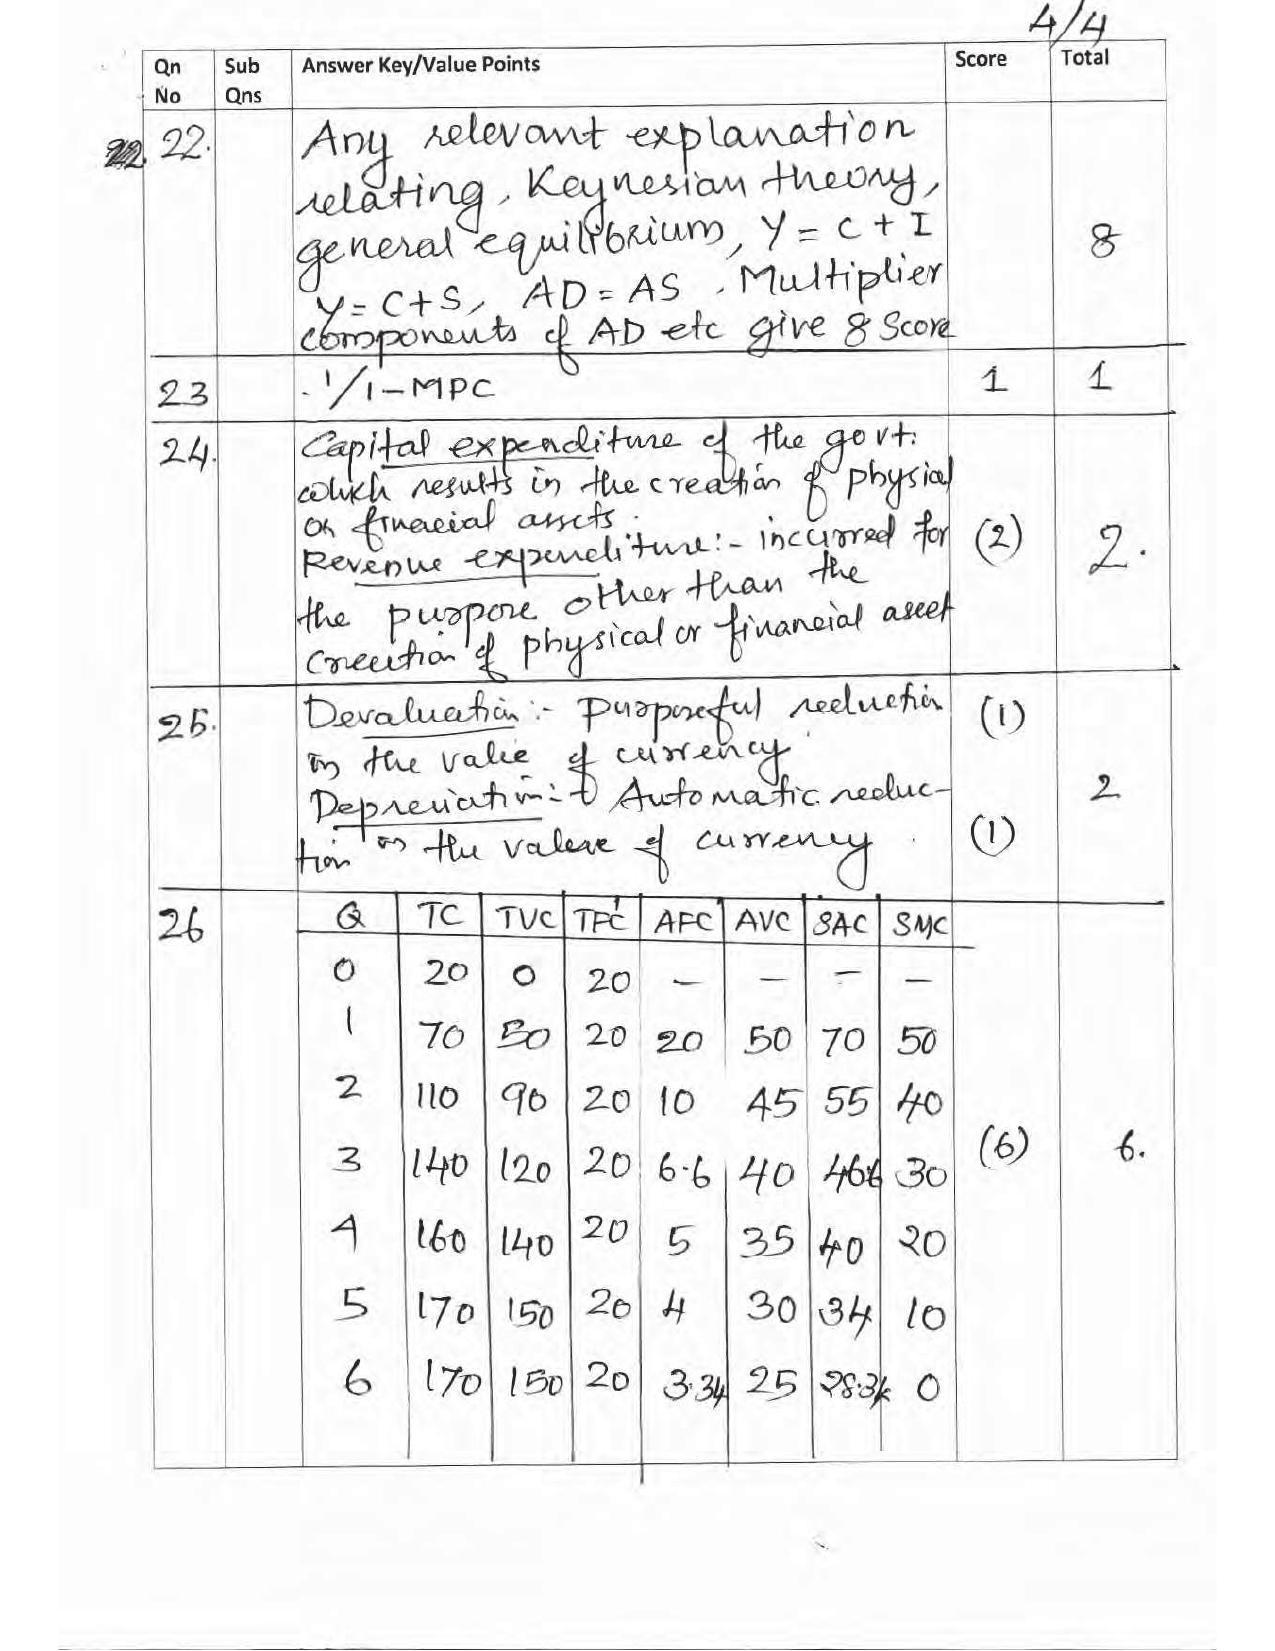 4/4
Qn No Sub Qns Answer Key/Value Points Score Total
22. Any relevant explanation
relating, Keynesian theory,
general equilibrium, Y = C + I
Y = C+S, AD = AS, Multiplier 8
components of AD etc give 8 Score
23 1/1-MPC 1 1
24. Capital expenditure of the govt.
which results in the creation of physical
or financial assets.
Revenue expenditure:- incurred for (2) 2.
the purpose other than the
creation of physical or financial asset
25. Devaluation:- purposeful reduction (1)
in the value of currency
Depreciation:- Automatic reduc- 2
tion in the value of currency. (1)
26 Q TC TVC TFC AFC AVC SAC SMC
0 20 0 20 – – – –
1 70 50 20 20 50 70 50
2 110 90 20 10 45 55 40
3 140 120 20 6.6 40 46.6 30 (6) 6.
4 160 140 20 5 35 40 20
5 170 150 20 4 30 34 10
6 170 150 20 3.34 25 28.3 0